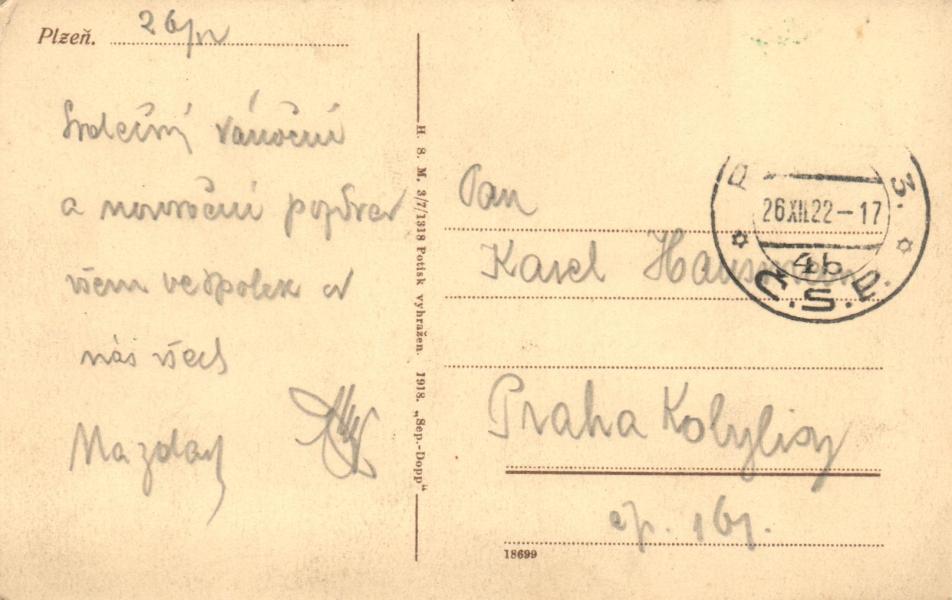 Plzeň.
26/XII
Srdečný vánoční
a novoroční pozdrav
všem vespolek od
nás všech
H. S. M. 3/7/1318 Potisk vyhražen. 1918. „Sep.-Dopp“
Pan
Karel
Praha Kobylisy
čp. 161.
18699
P 3.
26.XII.22-17
4b
Č.S.P.